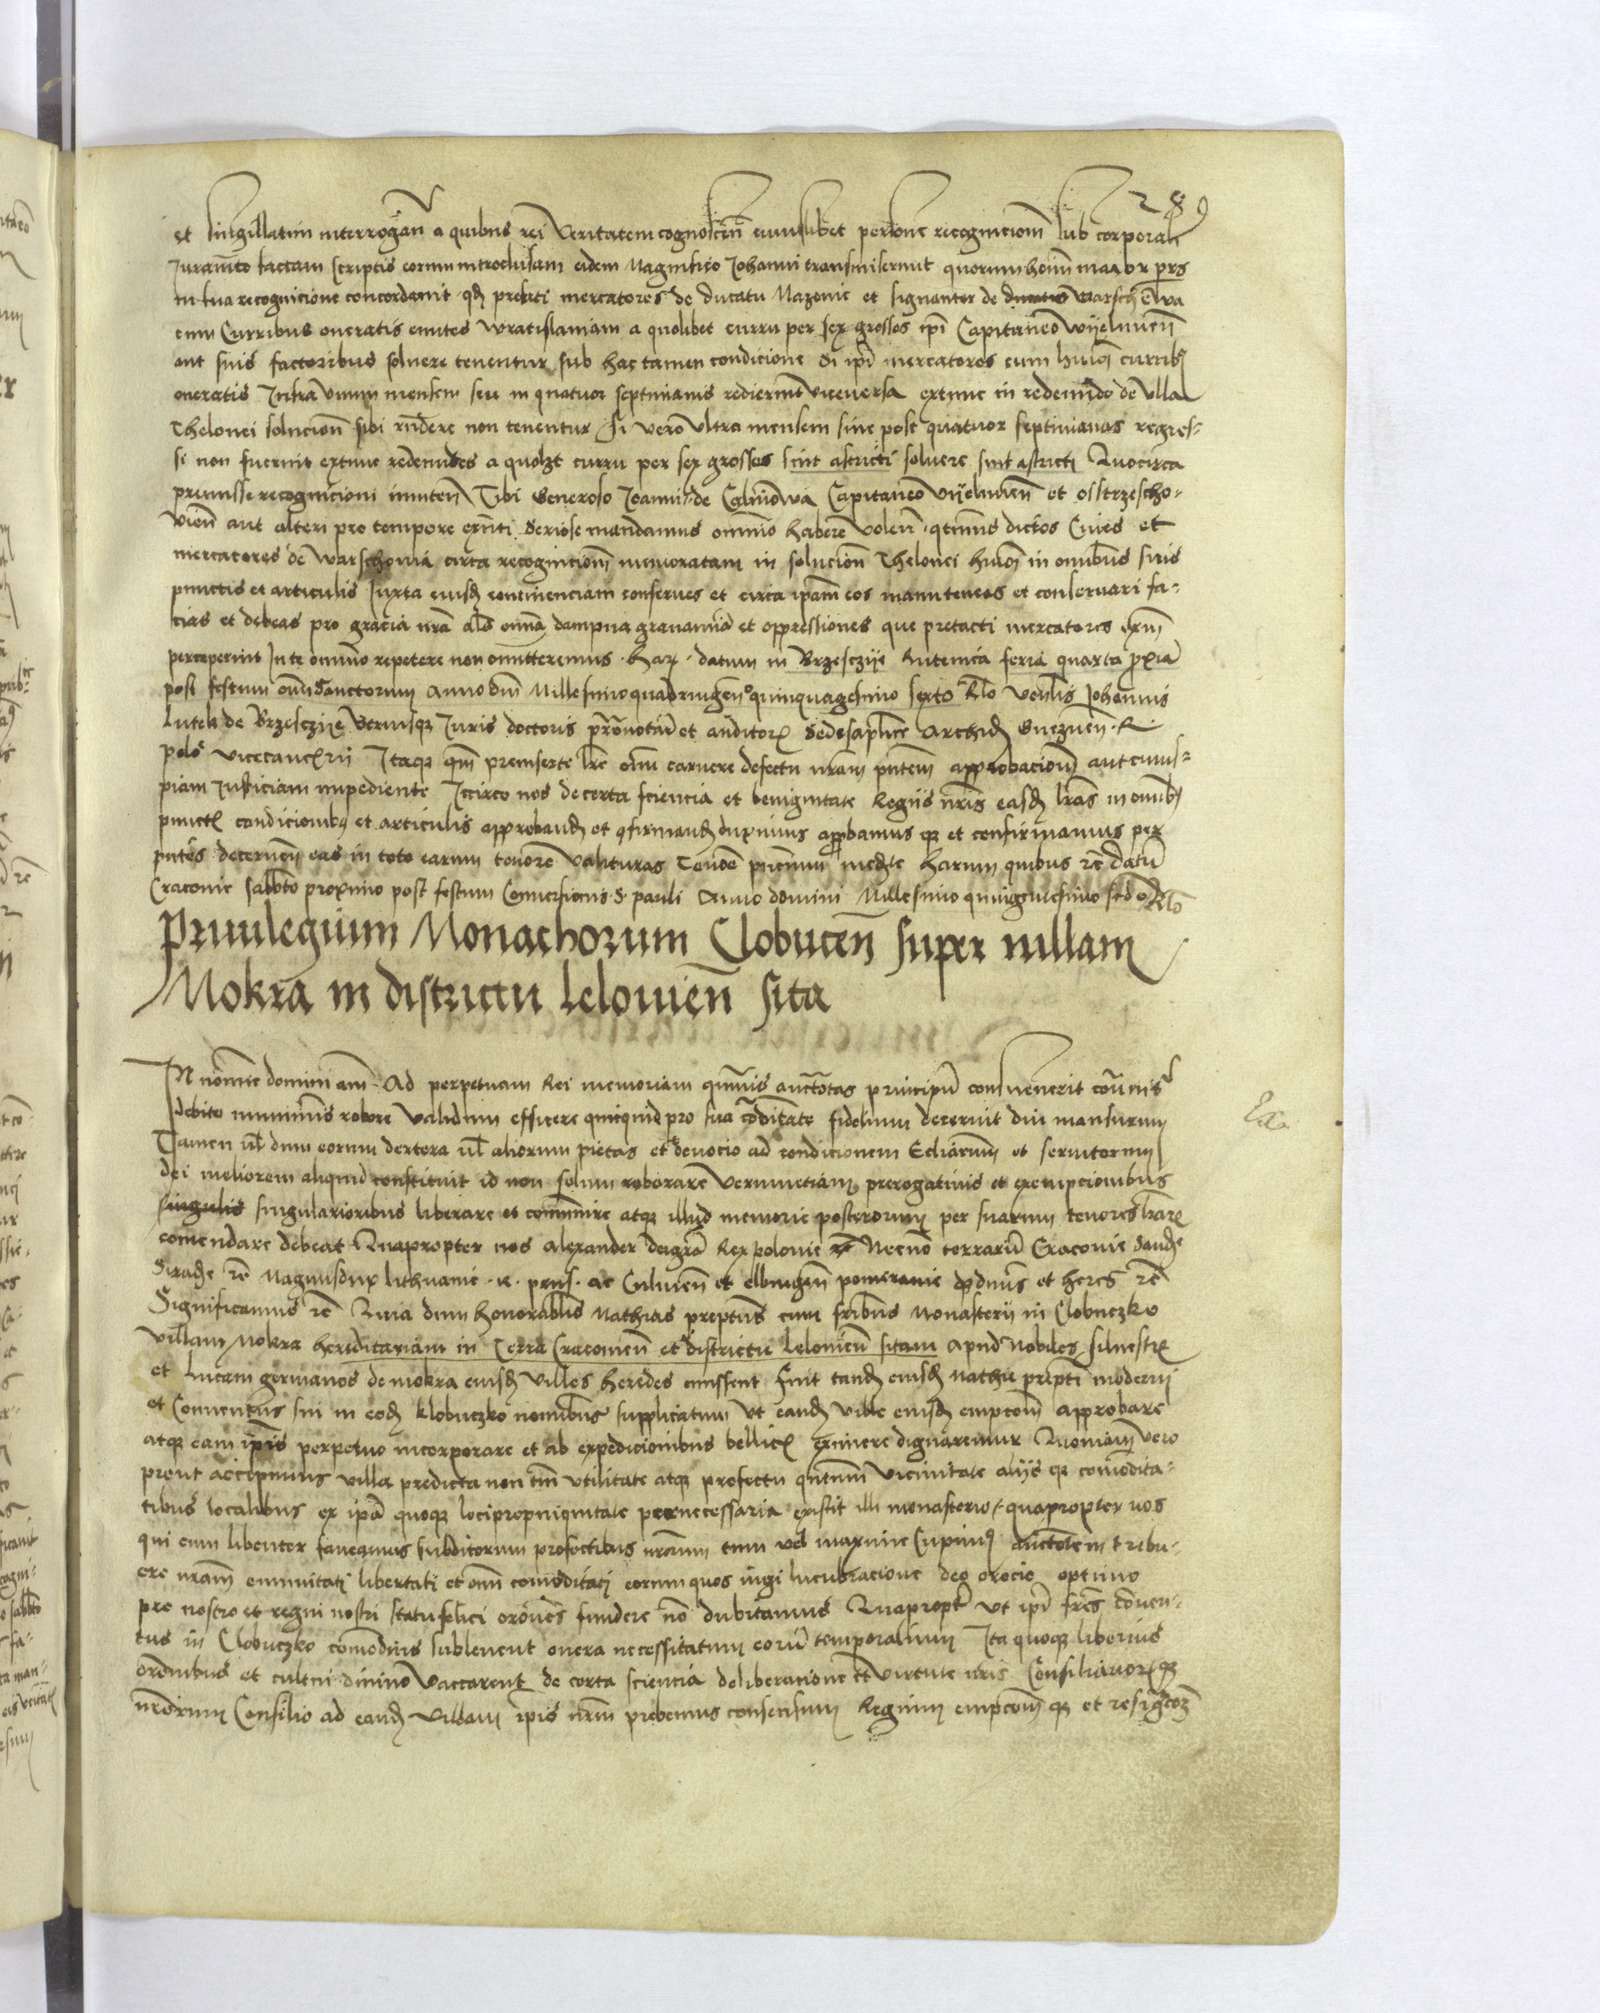 289
et singillatim interrogan a quibus rei veritatem cognoscen cuiuslibet persone recognicionem sub corporali
Iuramto factam scriptis eorum introclusam eidem Magnifico Johanni transmiserunt quorum hoim maior pars
in sua recognicione concordavit qd prefati mercatores de ducatu Mazovie et signanter de Warschewa
cum Curribus oneratis euntes Wratislaviam a quolibet curru per sex grossos ipi Capitaneo Wyelunen
aut suis factoribus solvere tenentur sub hac tamen condicione Si ipi mercatores cum huiusmodi curribus
oneratis Infra Unum mensem seu in quatuor septimanis redierint viceversa extunc in redeundo de ulla
Thelonei solucione sibi rndere non tenentur Si vero ultra mensem sive post quatuor septimanas regres-
si non fuerint extunc redeuntes a quolzet curru per sex grossos sint astricti solvere sint astricti Quocirca
premisse recognicioni inniten Tibi Generoso Joanni de Capitaneo Wyelunien et Ostrzescho-
vien aut alteri pro tempore exnti Seriose mandamus omnino habere volen qtinus dictos Cives et
mercatores de Warschovia circa recognicionem memoratam in solucion Thelonei huiusmodi in omibus suis
punctis et articulis Juxta eiusd continenciam conserves et circa ipam eos manuteneas et conservari fa-
cias et debeas pro gracia nra als omnia dampna gravamina et oppressiones que pretacti mercatores exinde
perceperint In te omnino repetere non omitteremus Harz datum in Brzesczye feria quarta pxia
post festum omni Sanctorum Anno dni Millesimoquadringen quinquagesimo sexto Rlo venlis Johannis
Lutek de Brzesczye Utriusque Juris doctoris prothonotarii et auditoris Sedis aplice Archid Gneznen R
polo vicecancrii Itaque qm preinserte lre om carnere defectu nram pntem approbacionem aut cuius-
piam Justiciam impediente Iccirco nos de certa sciencia et benignitate Regiis nris easd lras in omnibus
punctis condicionibus et articulis approband et confirmand duximus approbamus que et confirmamus per
pntes decernen eas in toto earum tenore valituras Tenore pncium medte harum quibus re datum
Cracovie sabbto proximo post festum Conversionis S pauli Anno domini Millesimo quingentesimo scdo Rlo
Privilegium Monachorum Clobucen super villam
Mokra in districtu Leloviensi sita
IN nomine domini am Ad perpetuam Rei memoriam qmvis auctoritas principum consueverit
debito muniminis robore validum efficere quicquid pro sua condicione fidelium decrevit diu mansurum
Tamen ubi dum eorum dextera ubi aliorum pietas et devocio ad condicionem Ecclarum et servitorum
dei meliorem aliquid constituit id non solum roborare verumetiam prerogativis et exempcionibus
singulis singularioribus liberare et communire atque illud memorie posterorum per suarum tenores lrarum
comendare debeat Quapropter nos Alexander dei gra Rex polonie Necno terrarum Cracovie Sande
Sirade re Magnusdux lithuanie R prus ac Culmen et Elbingen pomeranie dns et heres re
Significamus re Quia dum honorablis Mathias preptus cum fribus Monasterii in Clobuczko
villam Mokra hereditariam in Terra Cracovien et districtu Lelovien sitam apud Nobiles Silvestrum
et Lucam germanos de mokra eiusd ville heredes emissent Fuit tand eiusd Mathie prepti moderni
et Conventus sui in eod Klobuczko nomibus supplicatum ut eand ville eiusd empcom approbare
atque eam ipis perpetuo incorporare et ab expedicionibus bellicis eximere dignaremur Quoniam vero
prout accepimus villa predicta non tm utilitate atque profectu qntum vicinitate aliis que comodita-
tibus localibus ex ipa quoque loci propinquitate pernecessaria existit illi monasterio quapropter nos
qui cum libenter faveamus subditorum profectibus nrorum tum vel maxime Cupimus auctoritatem tribu-
ere nram emunitati libertati et omi comoditati eorum quos iugi lucubracione deo orocie optimo
pro nostro et regni nostri statu felici orones fundere no dubitamus Quapropter ut ipi fres conven-
tus in Clobuczko comodius sublevent onera necessitatum eorum temporalium Ita quoque liberius
oronibus et cultui divino vaccarent de certa sciencia deliberacione et virtute nris Consiliariorum que
nrorum Consilio ad eand villam ipis nrm prebemus consensum Regium empcom que et resignacoz